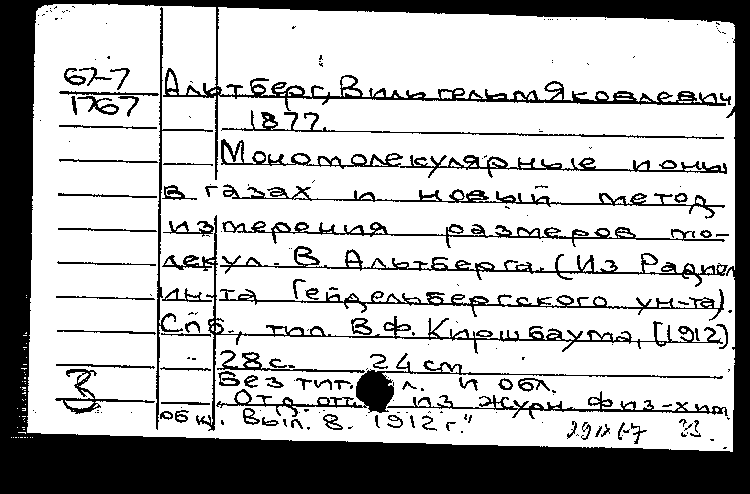 67-7
1767
Альтберг, Вильгельм Яковлевич,
1877.
Мономолекулярные ионы
в газах и новый метод
измерения размеров мо-
лекул. В. Альтберга. (Из Радиол
ин-та Гейдельбергского ун-та).
Спб., тип. В.Ф. Киршбаума, [1912].
28 с. 24 см
Без тит. л. и обл.
"Отд. отт. из журн. физ-хим
общ. Вып. 8. 1912 г."
3